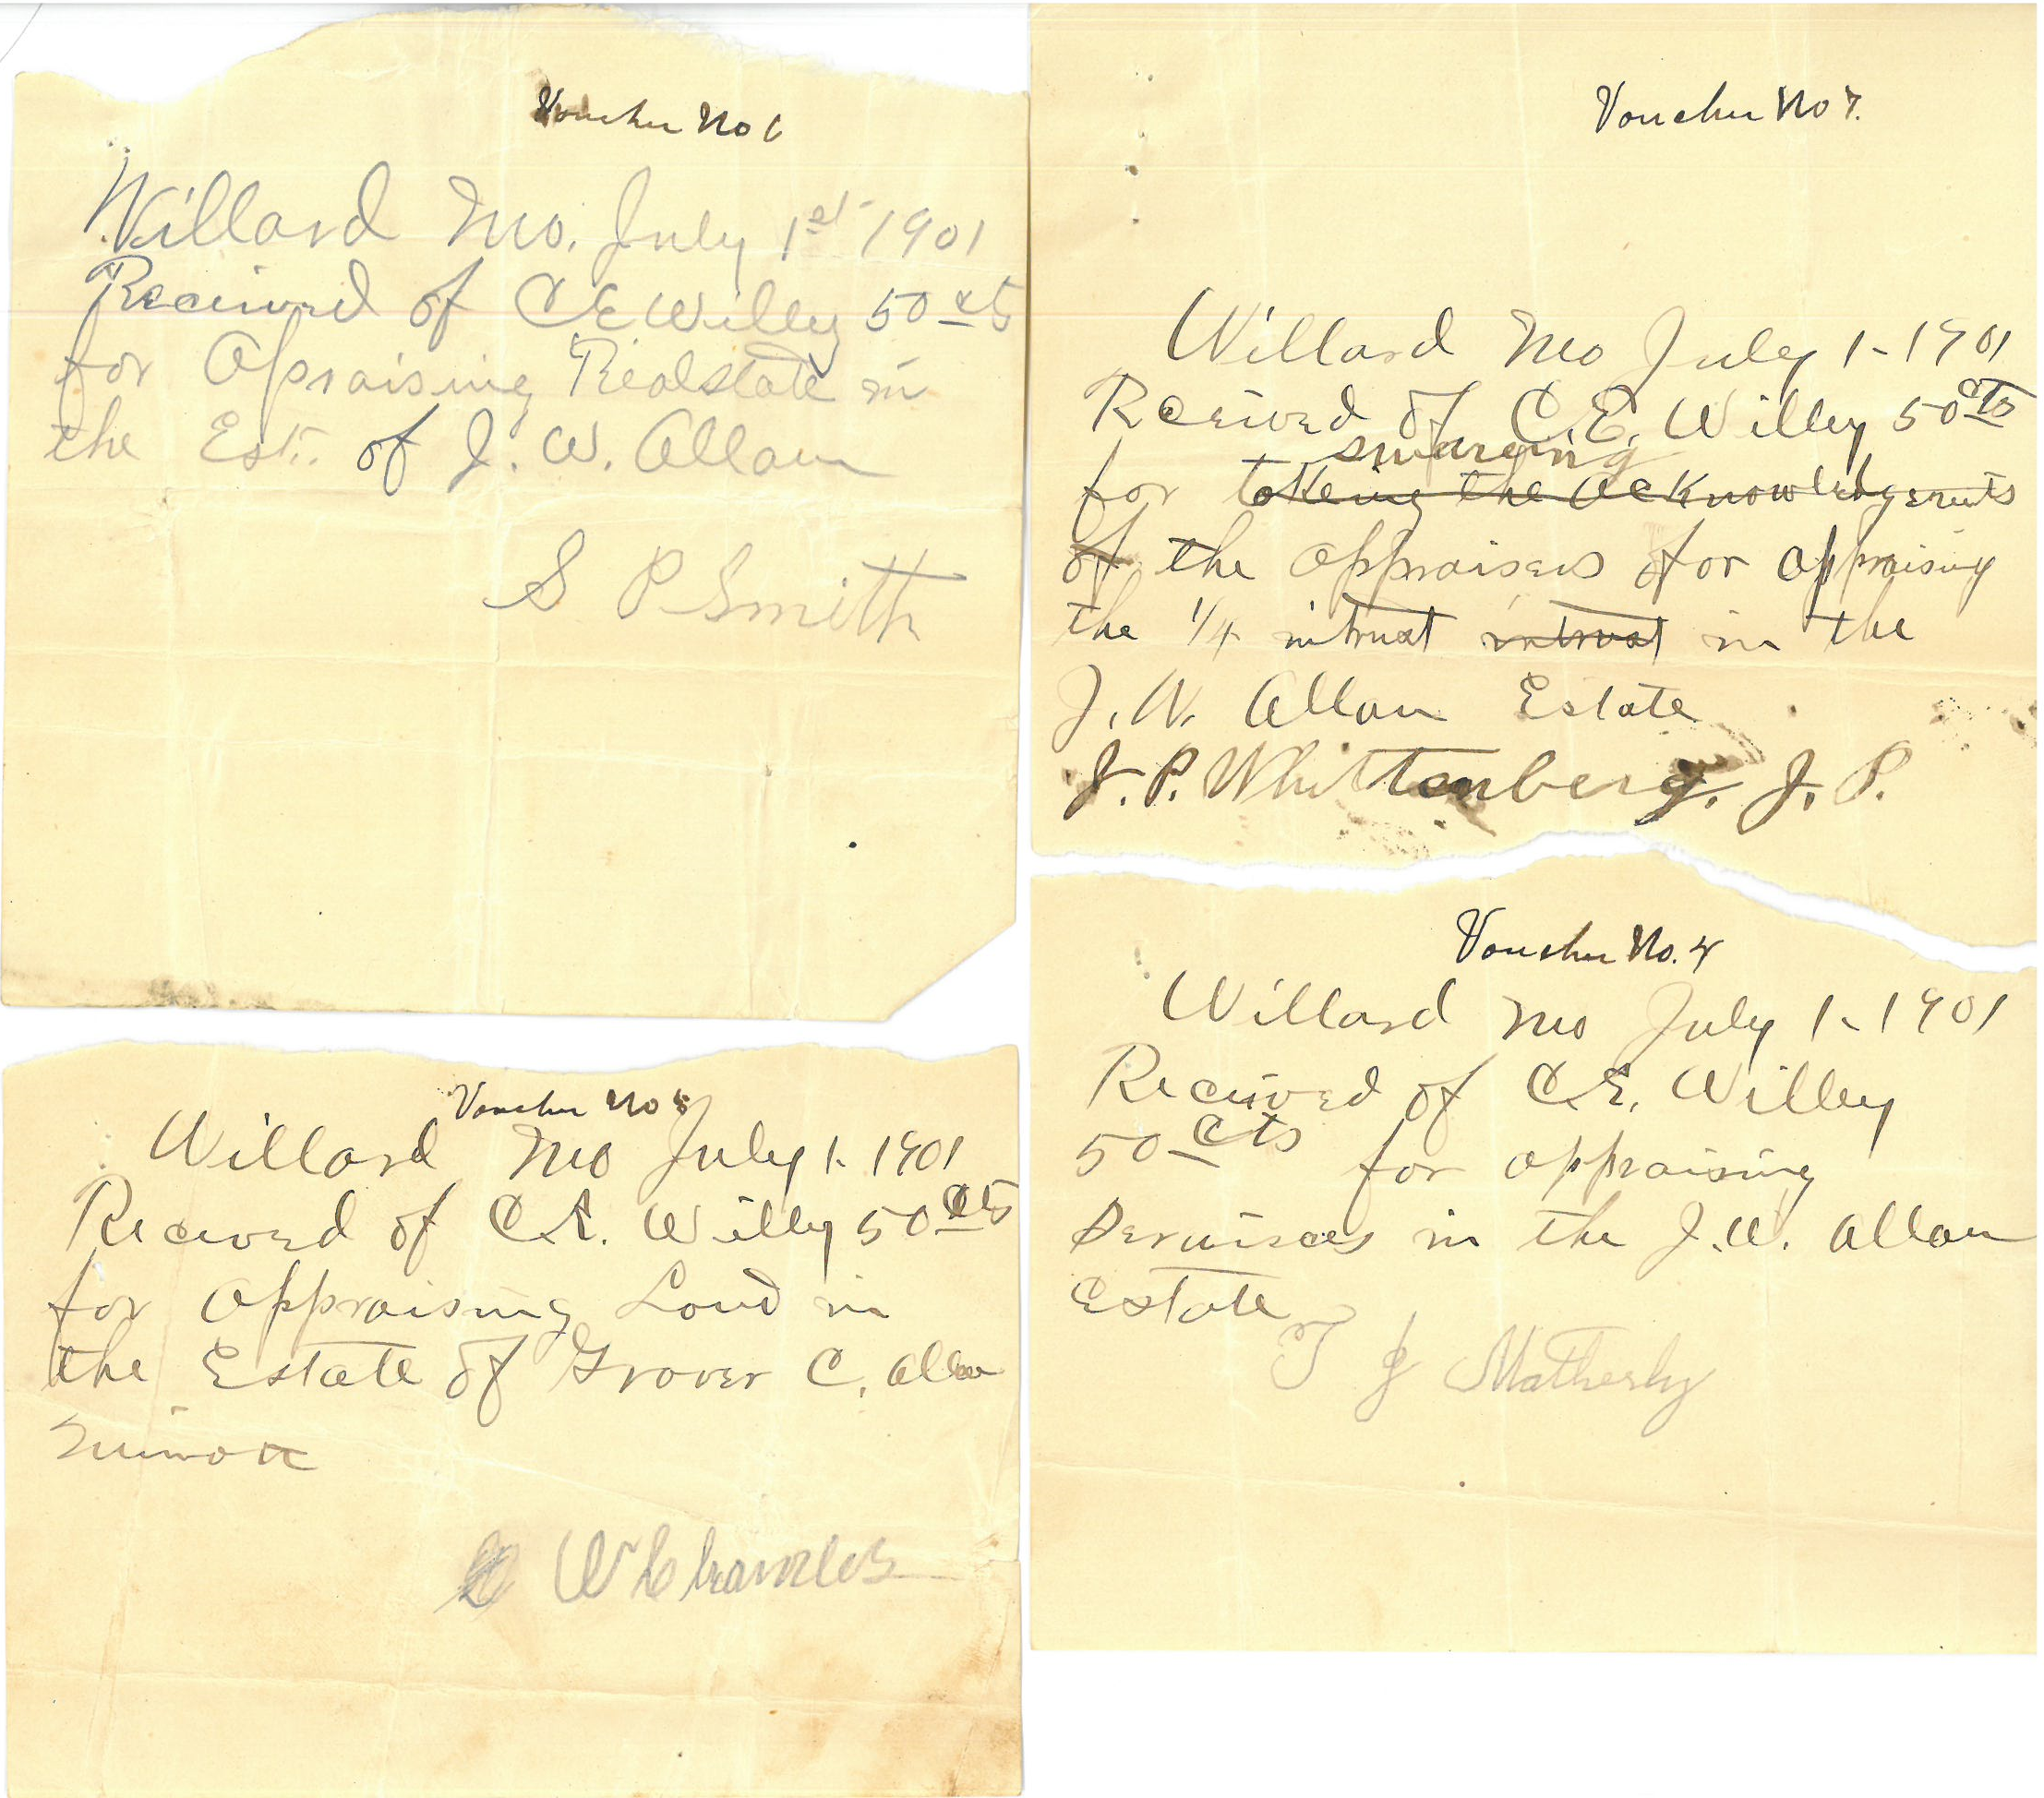 Voucher No 6
Willard Mo. July 1st 1901
Received of C E Willey 50 cts
for Apraising Realstate in
the Est. of J. W. Allan
S P Smith
Voucher No 7.
Willard Mo July 1-1901
Received of C.E. Willey 50 cts
swearing
for taking the acknowledgemts
of the appraisers for appraising
the 1/4 intrust intrust in the
J. W. Allan Estate
J. P. Whittenberg, J. P.
Voucher No 5
Willard Mo July 1. 1901
Received of C.E. Willey 50 cts
for appraising Land in
the Estate of Grover C. Allan
minor
W
Voucher No. 4
Willard Mo July 1-1901
Received of C.E. Willey
50 cts for appraising
Services in the J.W. Allan
Estate
T J Matherly